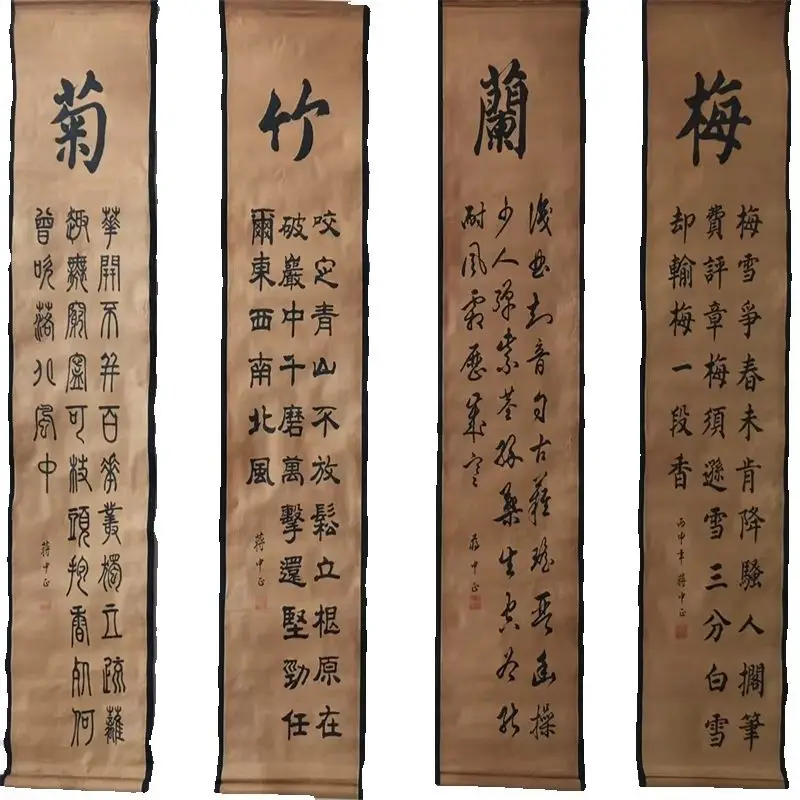 梅
梅雪爭春未肯降騷人擱筆
費評章梅須遜雪三分白雪
却輸梅一段香
丙申年蔣中正
蘭
曲知音自古難瑤琴幽操
少人彈紫莖綠葉生空谷能
耐風霜歷歲寒
蔣中正
竹
咬定青山不放鬆立根原在
破巖中千磨萬擊還堅勁任
爾東西南北風
蔣中正
菊
華開不并百花叢獨立疏蘺
趣無窮寧可枝頭抱香死何
曾吹落北風中
蔣中正